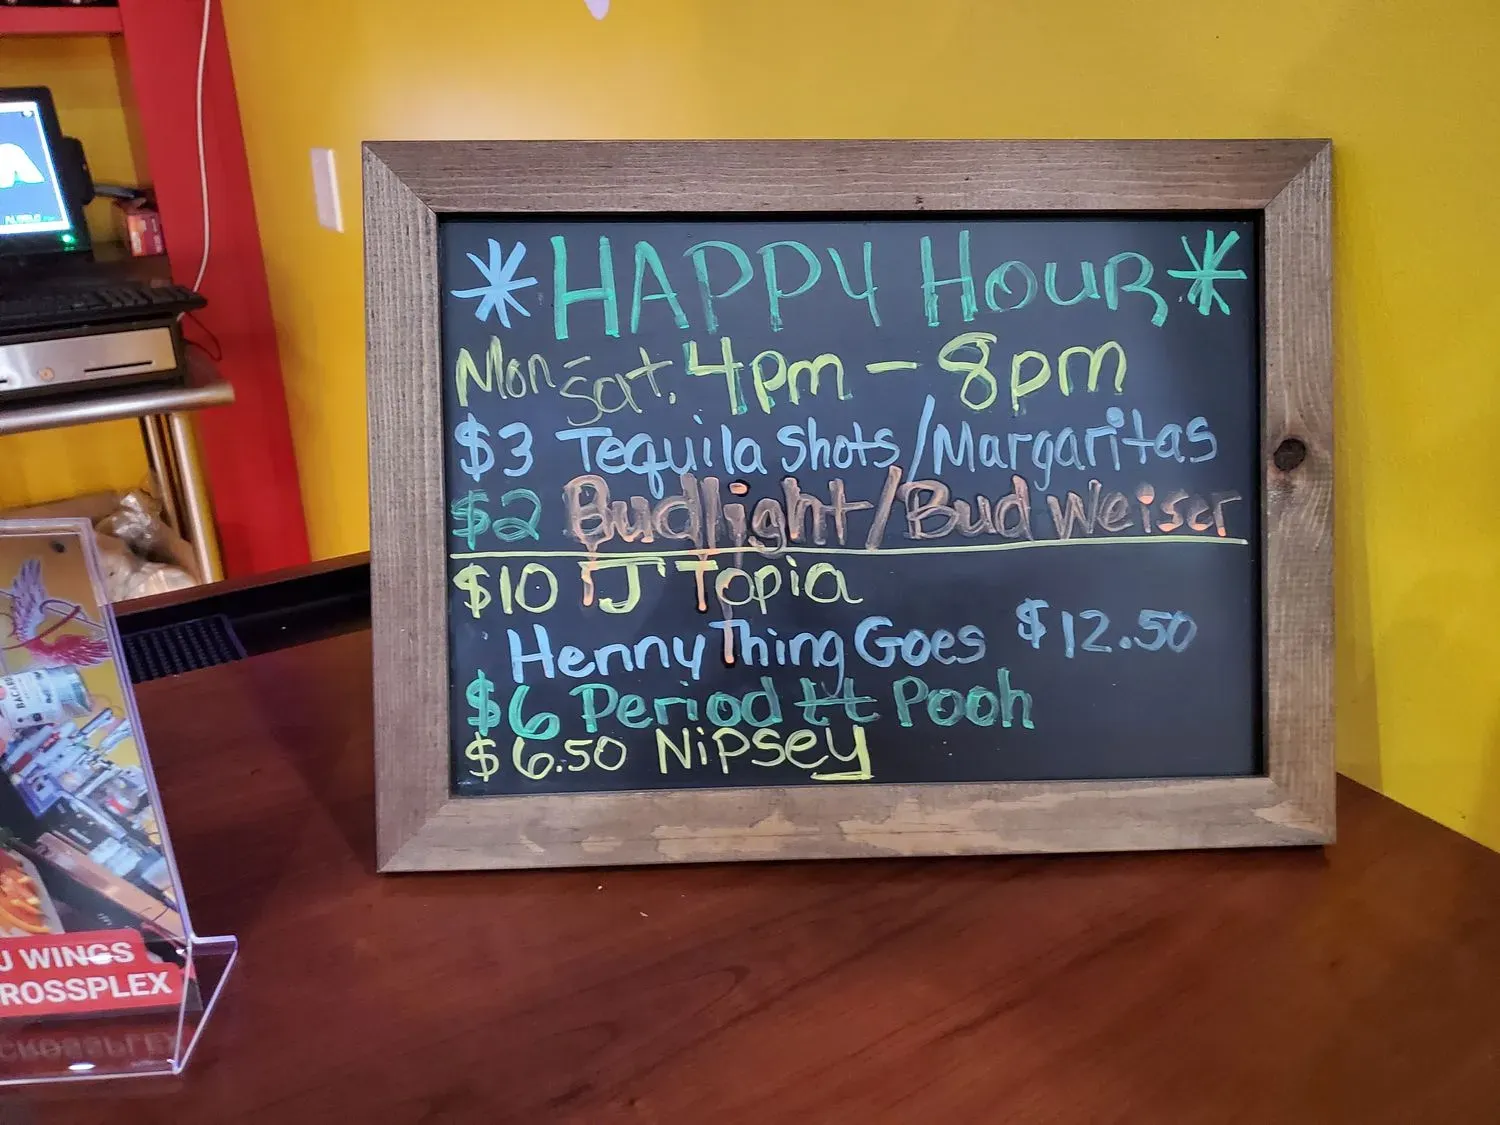 *HAPPY HOUR*
Mon-Sat. 4pm - 8pm
$3 Tequila Shots/Margaritas
$2 Budlight/Bud Weiser
$10 TJ Topia
Henny Thing Goes $12.50
$6 Period tt Pooh
$6.50 Nipsey
J WINGS
ROSSPLEX